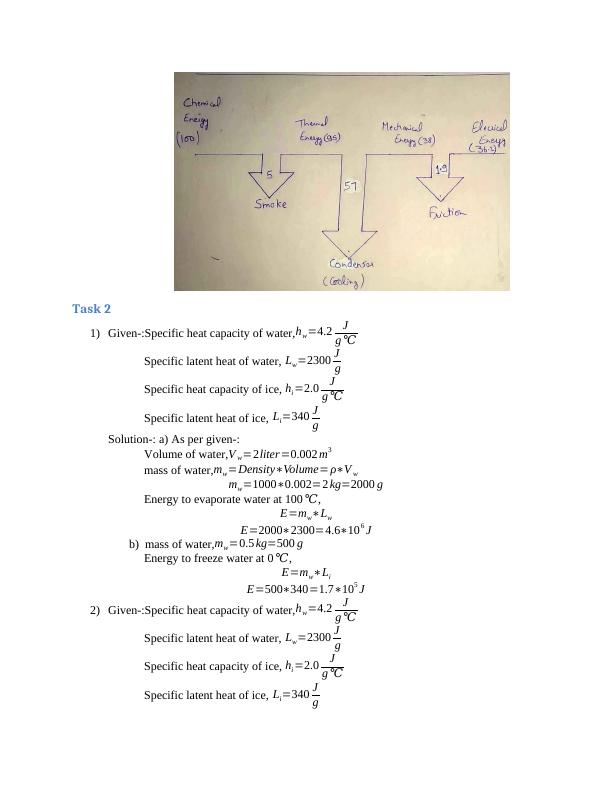 Chemical
Energy
(100)
Thermal
Energy (95)
Mechanical
Energy (38)
Electrical
Energy
(36.1)
5
57
1.9
Smoke
Friction
Condensor
(Cooling)
Task 2
1) Given-:Specific heat capacity of water, h_w=4.2 J/g℃
Specific latent heat of water, L_w=2300 J/g
Specific heat capacity of ice, h_i=2.0 J/g℃
Specific latent heat of ice, L_i=340 J/g
Solution-: a) As per given-:
Volume of water, V_w=2liter=0.002m³
mass of water, m_w=Density∗Volume=ρ∗V_w
m_w=1000∗0.002=2kg=2000g
Energy to evaporate water at 100℃,
E=m_w∗L_w
E=2000∗2300=4.6∗10⁶J
b) mass of water, m_w=0.5kg=500g
Energy to freeze water at 0℃,
E=m_w∗L_i
E=500∗340=1.7∗10⁵J
2) Given-:Specific heat capacity of water, h_w=4.2 J/g℃
Specific latent heat of water, L_w=2300 J/g
Specific heat capacity of ice, h_i=2.0 J/g℃
Specific latent heat of ice, L_i=340 J/g